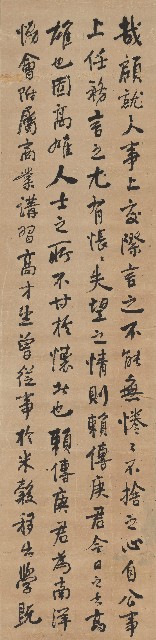 哉顧就人事上交際言之不能無惓〻不捨之心自公事
上任務言之尤有悵〻失望之情則賴傳庚君今日之去高
雄也固高雄人士之所不甘於懷者也賴傳庚君為南洋
協會附屬商業講習高才生曾從事於米穀移出學既